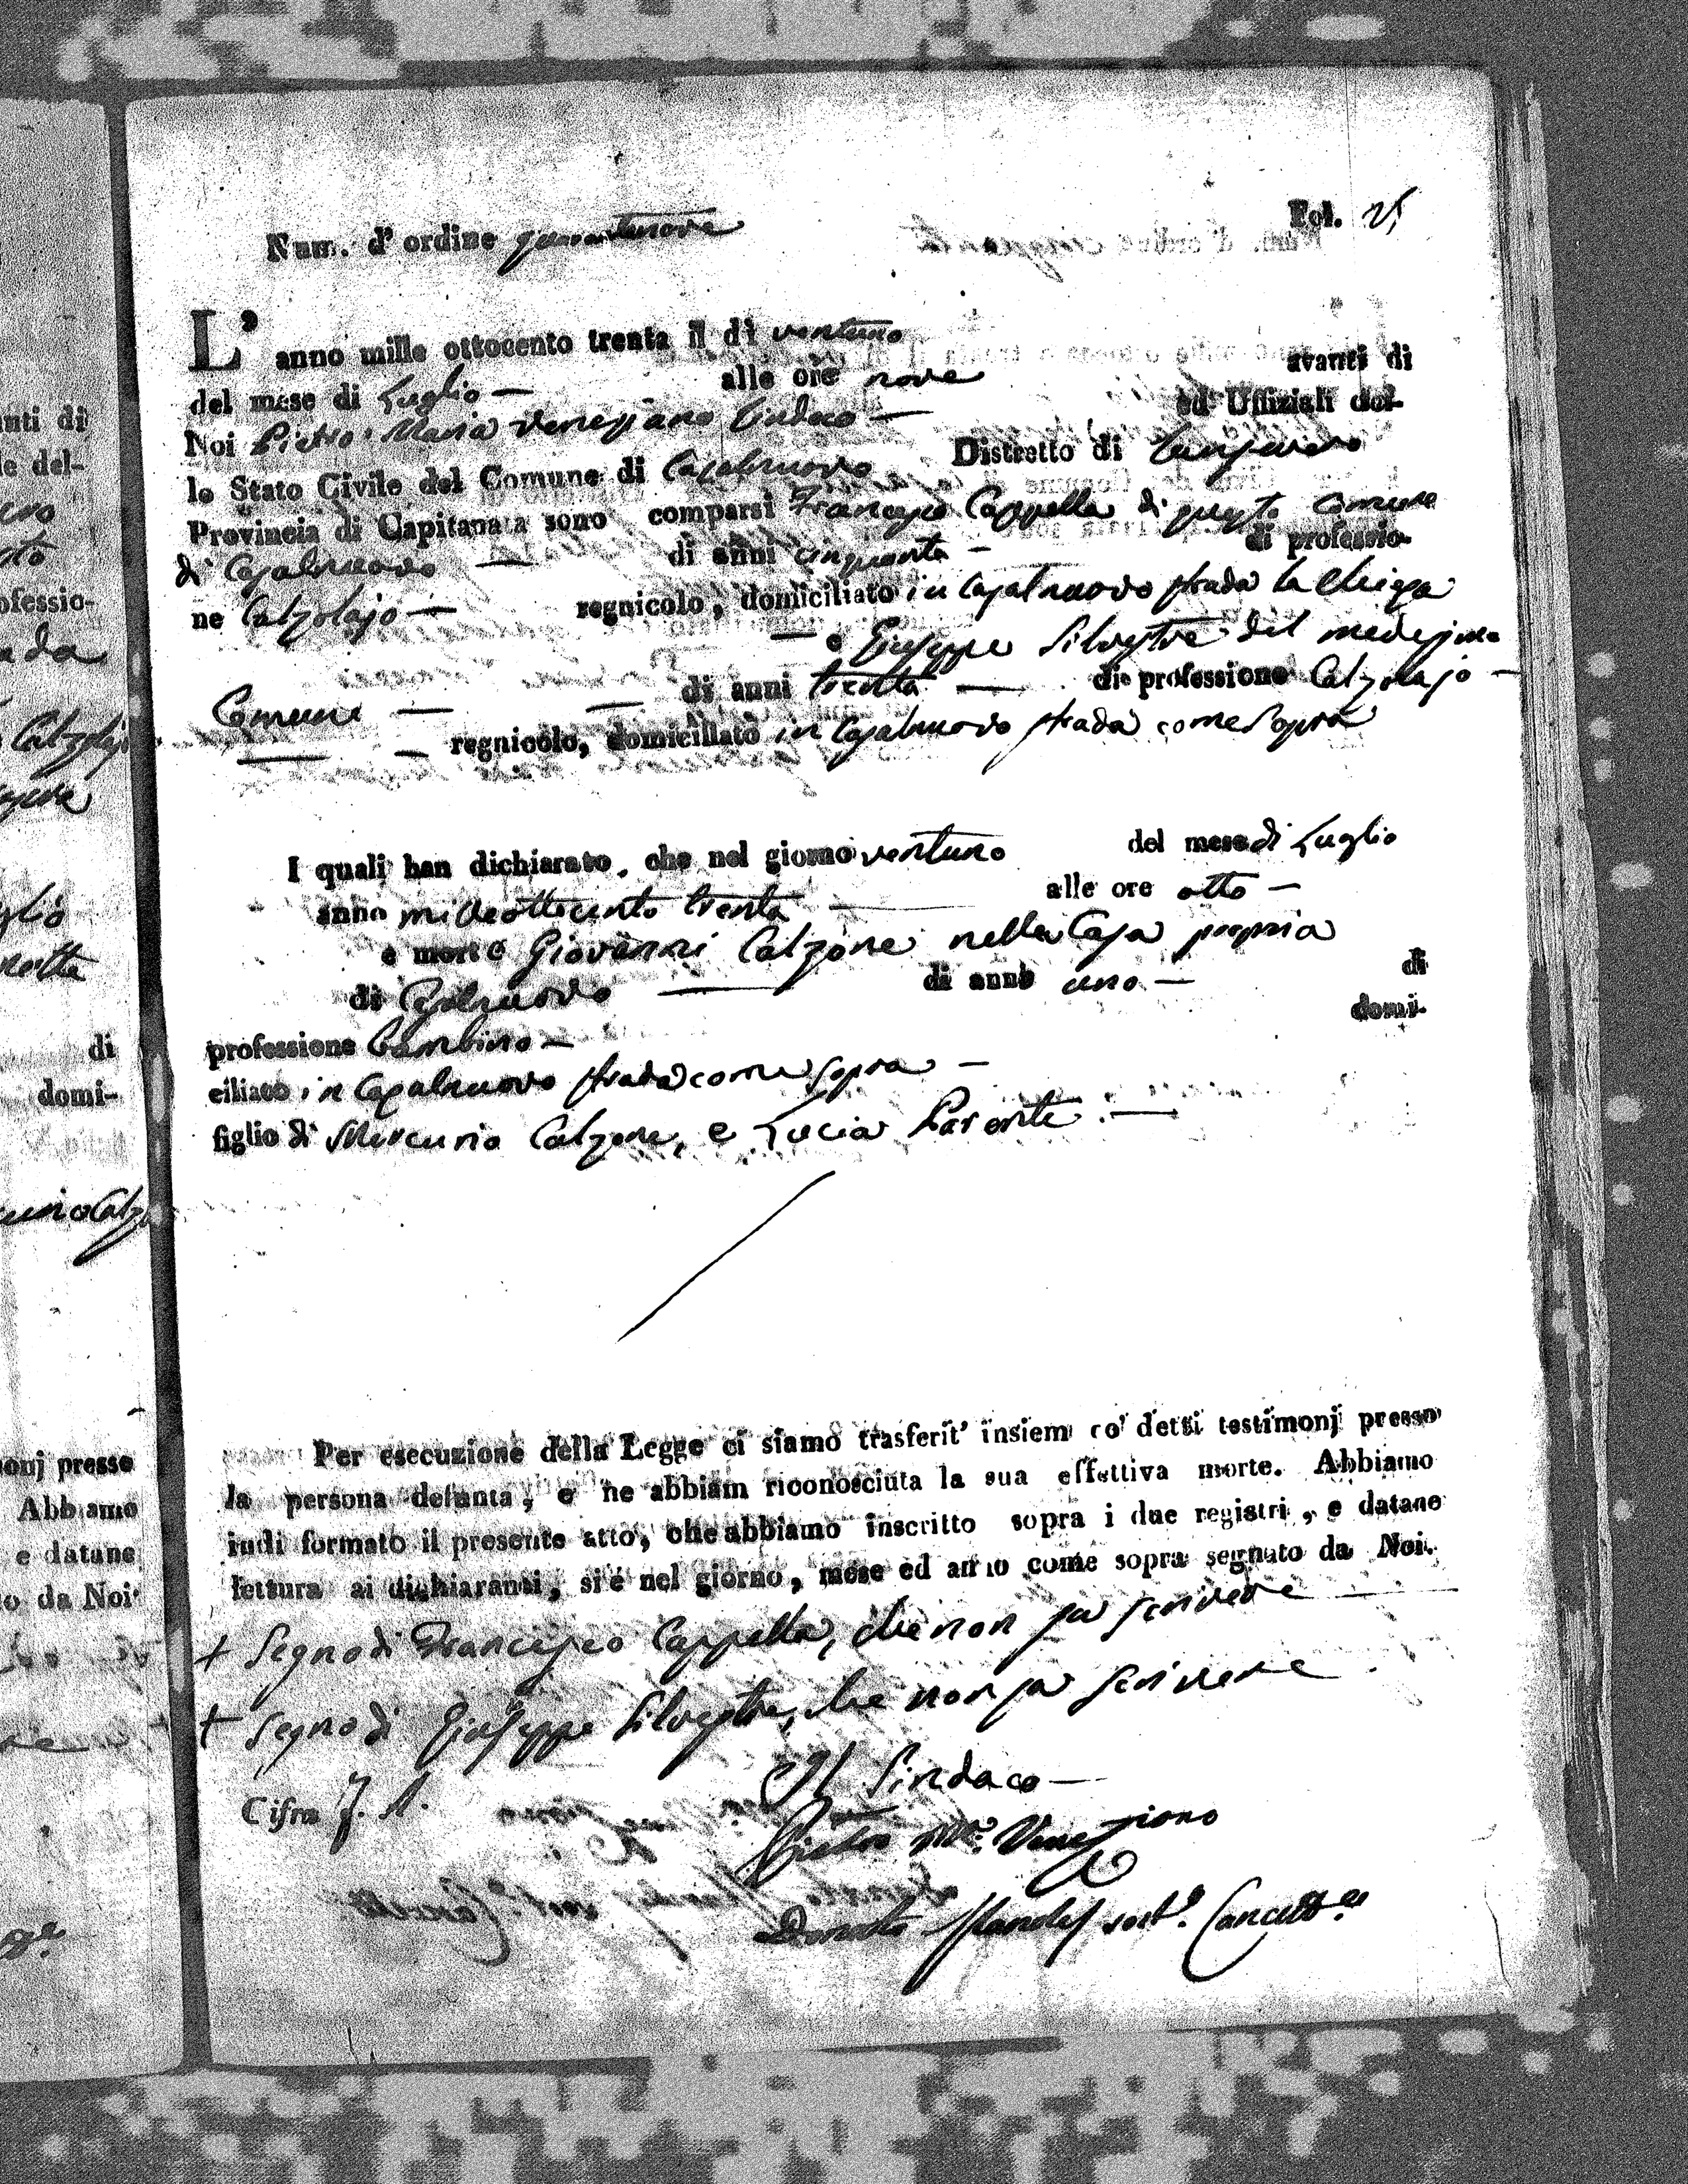 Fol. 25
Num. d' ordine quarantanove
L' anno mille ottocento trenta il dì ventuno
del mese di Luglio — alle ore nove avanti di
Noi Pietro Maria Veneziano Sindaco — ed Uffiziali del-
lo Stato Civile del Comune di Casalnuovo Distretto di Sansevero
Provincia di Capitanata sono comparsi Francesco Cappella di questo comune
di Casalnuovo — di anni cinquanta — di professio-
ne Calzolajo — regnicolo, domiciliato in Casalnuovo strada la Chiesa
— e Giuseppe Silvestre del medesimo
Comune — — di anni trenta — di professione Calzolajo —
— — regnicolo, domiciliato in Casalnuovo strada come sopra
I quali han dichiarato, che nel giorno ventuno del mese di Luglio
anno milleottocento trenta — alle ore otto —
è morto Giovanni Calzone nella Casa propria
di Casalnuovo — di anni uno — di
professione bambino — domi-
ciliato in Casalnuovo strada come sopra —
figlio di Mercurio Calzone, e Lucia Parente. —
Per esecuzione della Legge ci siamo trasferit' insiem co' detti testimonj presso
la persona defunta, e ne abbiam riconosciuta la sua effettiva morte. Abbiamo
indi formato il presente atto, che abbiamo inscritto sopra i due registri, e datane
lettura ai dichiaranti, si è nel giorno, mese ed anno come sopra segnato da Noi.
+ Segno di Francesco Cappella, che non sa scrivere —
+ Segno di Giuseppe Silvestre, che non sa scrivere
Il Sindaco —
Cifra
Pietro Ma. Veneziano
Donato sost.o Cancell.e